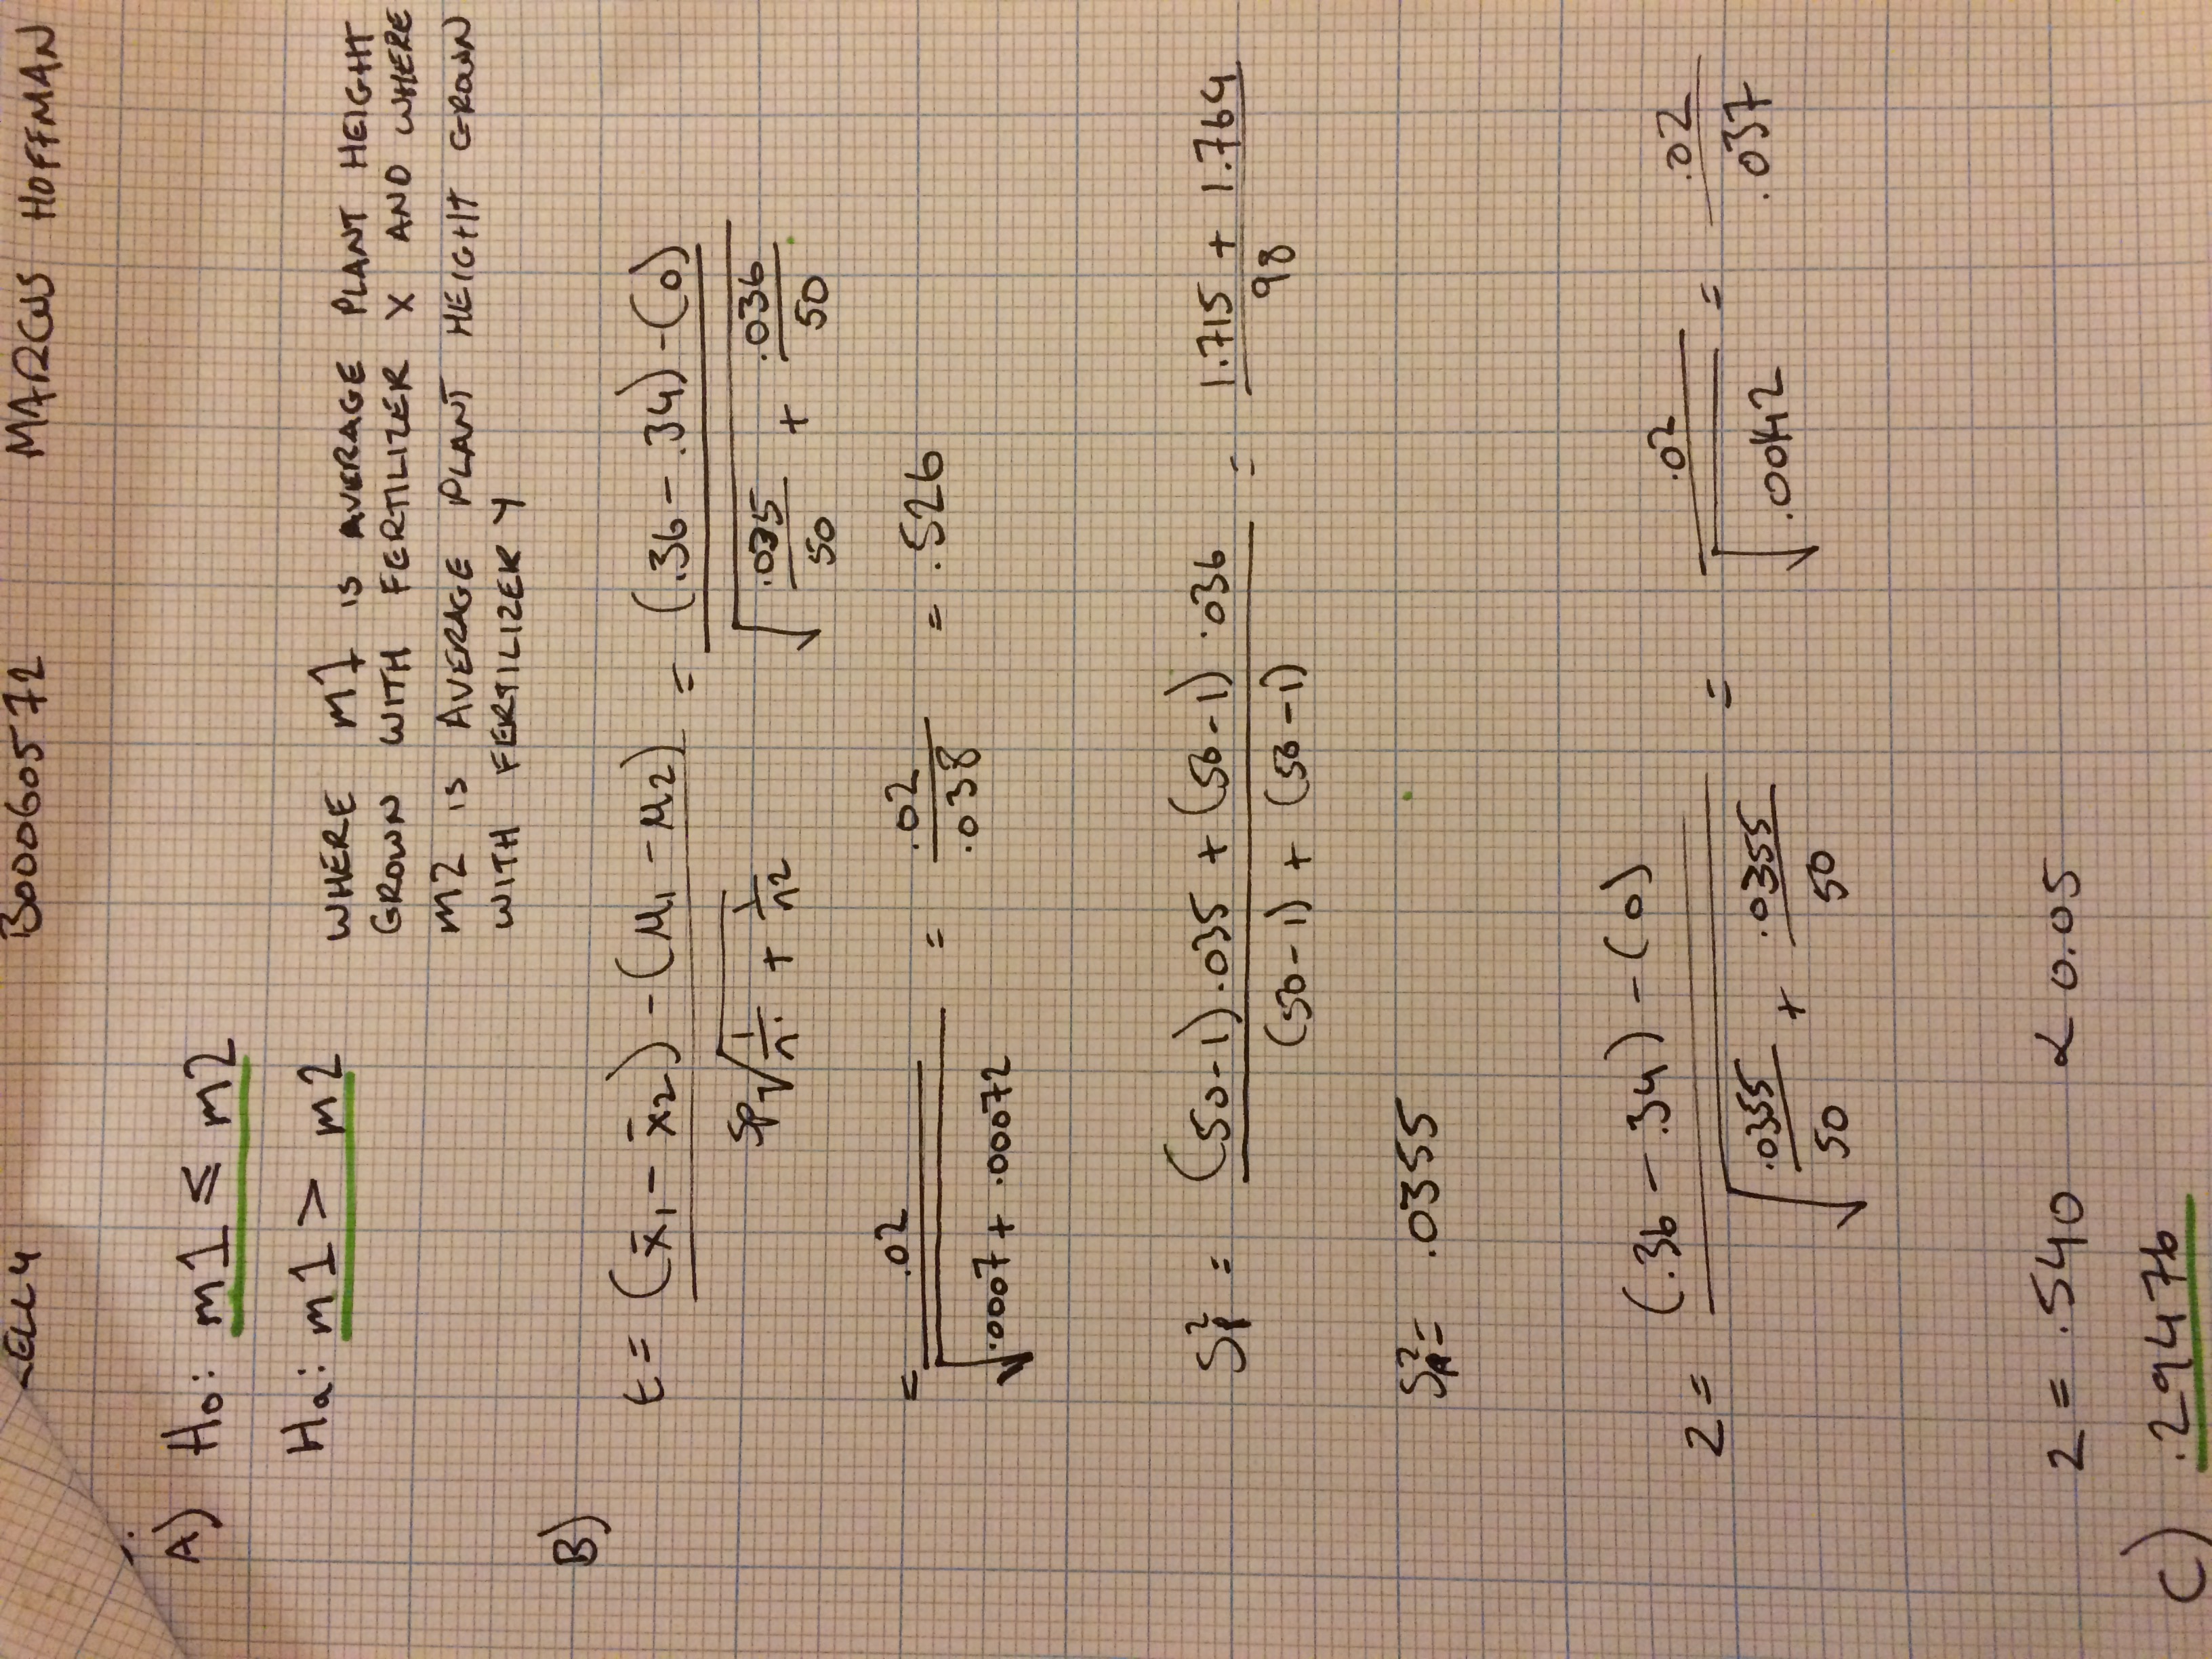 B00060572 MARCUS HOFFMAN
A) Ho: m1 ≤ m2
Ha: m1 > m2
WHERE m1 IS AVERAGE PLANT HEIGHT
GROWN WITH FERTILIZER X AND WHERE
m2 IS AVERAGE PLANT HEIGHT GROWN
WITH FERTILIZER Y
B)
t = (x̄1 - x̄2) - (μ1 - μ2) / Sp√(1/n1 + 1/n2) = (.36 - .34) - (0) / √(.035/50 + .036/50)
= .02 / √(.0007 + .00072) = .02 / .038 = .526
Sp² = (50-1).035 + (50-1).036 / (50-1) + (50-1) = 1.715 + 1.764 / 98
Sp² = .0355
z = (.36 - .34) - (0) / √(.0355/50 + .0355/50) = .02 / √.00142 = .02 / .037
z = .540 α 0.05
C) .29476